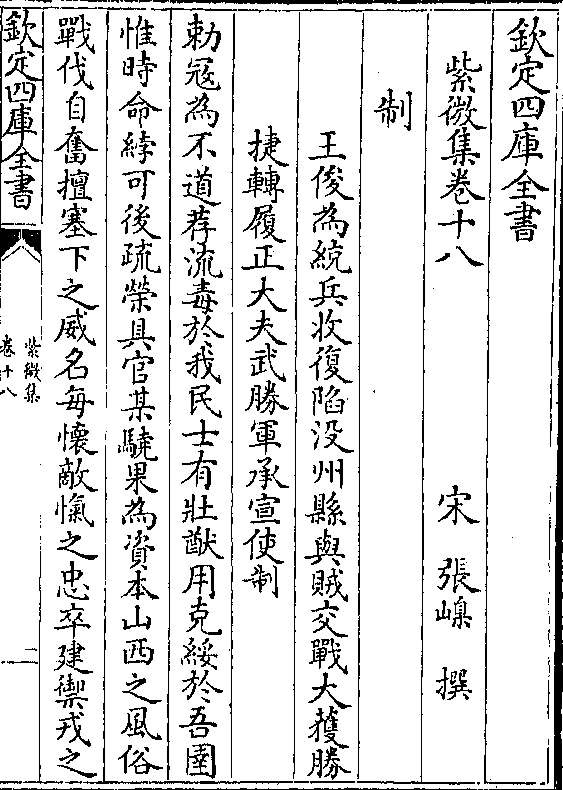 欽定四庫全書
紫微集卷十八
宋　張嵲　撰
制
王俊為統兵收復陷没州縣與賊交戰大獲勝
捷轉履正大夫武勝軍承宣使制
勅冦為不道荐流毒於我民士有壯猷用克綏於吾圉
惟時命綍可後疏榮具官某驍果為資本山西之風俗
戰伐自奮擅塞下之威名毎懷敵愾之忠卒建禦戎之
欽定四庫全書
紫微集
卷十八
一